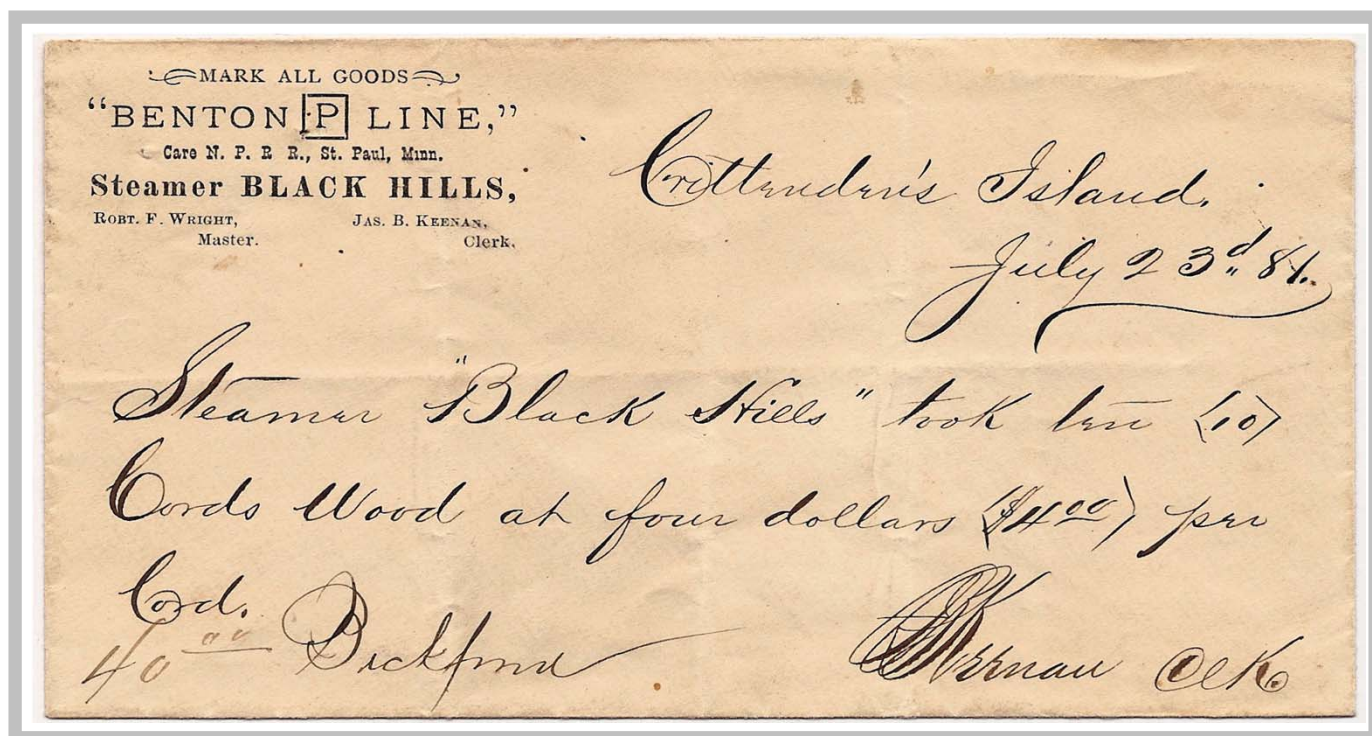 MARK ALL GOODS
"BENTON P LINE,"
Care N. P. R R., St. Paul, Minn.
Steamer BLACK HILLS,
ROBT. F. WRIGHT, JAS. B. KEENAN,
Master. Clerk.
Crittenden's Island.
July 23d 81.
Steamer "Black Hills" took ten (10)
Cords Wood at four dollars ($4 00) per
Cord.
40 00 Bickford JBKeenan Clk